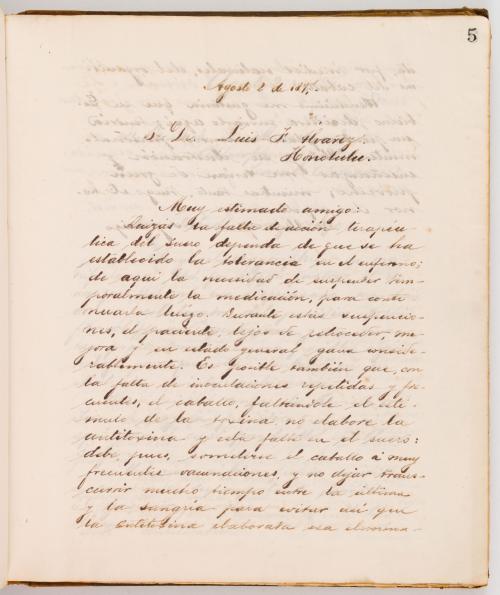 5
Agosto 2 de 189
S. Dr. Luis F. Alvarez.
Honolulu.
Muy estimado amigo:
Quizas la falta de acción terapéu-
tica del suero dependa de que se ha
establecido la tolerancia en el enfermo;
de aqui la necesidad de suspender tem-
poralmente la medicación, para conti-
nuarla luego. Durante estas suspencio-
nes, el paciente, lejos de retroceder, me-
jora y su estado general gana conside-
rablemente. Es posible tambien que, con
la falta de inoculaciones repetidas y fre-
cuentes, el caballo, faltandole el esti-
mulo de la toxina, no elabore la
antitoxina y esta falte en el suero:
debe, pues, someterse el caballo á muy
frecuentes vacunaciones, y no dejar trans-
currir mucho tiempo entre la última
y la sangria para evitar asi que
la antitoxina elaborada sea elimina-